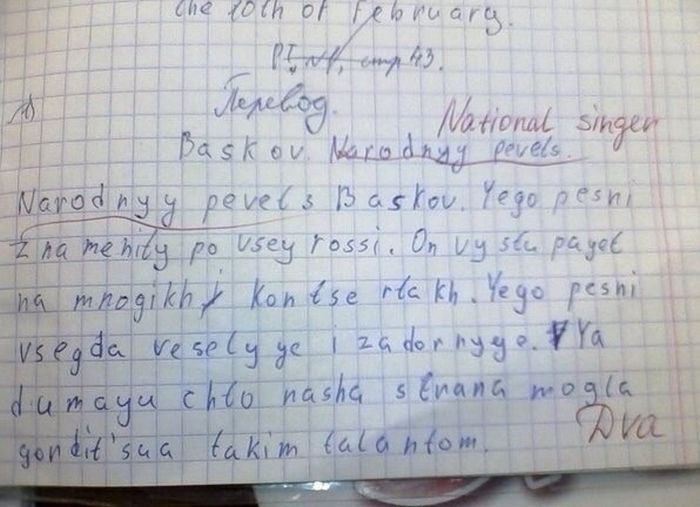 the 10th of February.
PI, №1, стр 43.
Перевод.
National singer
Baskov. Narodnyy pevets.
Narodnyy pevets Baskov. Yego pesni
znamenity po vsey rossi. On vystupayet
na mnogikh kontsertakh. Yego pesni
vsegda veselyye i zadornyye. Ya
dumayu chto nasha strana mogla
gordit'sya takim talantom.
Dva